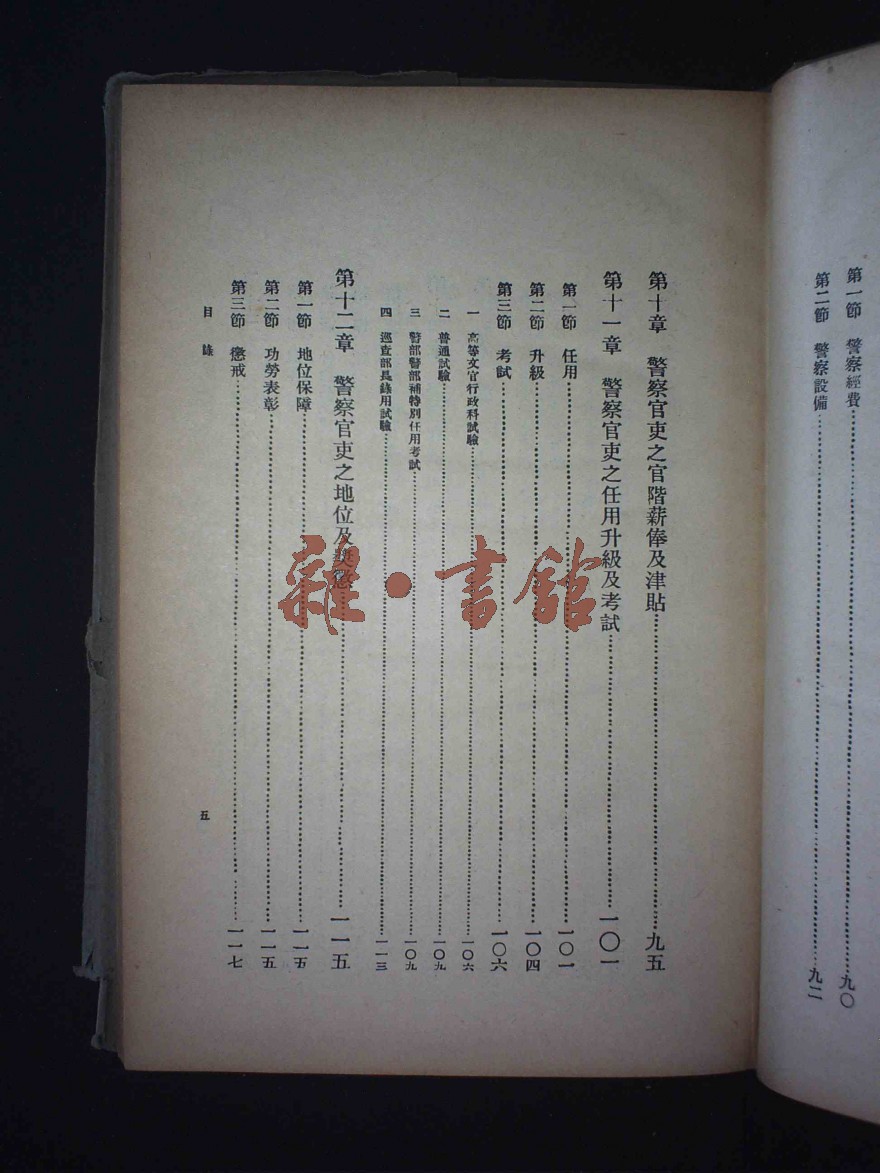 第一節　警察經費……九〇
第二節　警察設備……九二
第十章　警察官吏之官階薪俸及津貼……九五
第十一章　警察官吏之任用升級及考試……一〇一
第一節　任用……一〇一
第二節　升級……一〇四
第三節　考試……一〇六
一　高等文官行政科試驗……一〇六
二　普通試驗……一〇九
三　警部警部補特別任用考試……一〇九
四　巡查部長錄用試驗……一一三
第十二章　警察官吏之地位及獎懲……一一五
第一節　地位保障……一一五
第二節　功勞表彰……一一五
第三節　懲戒……一一七
目錄
五
雜·書館